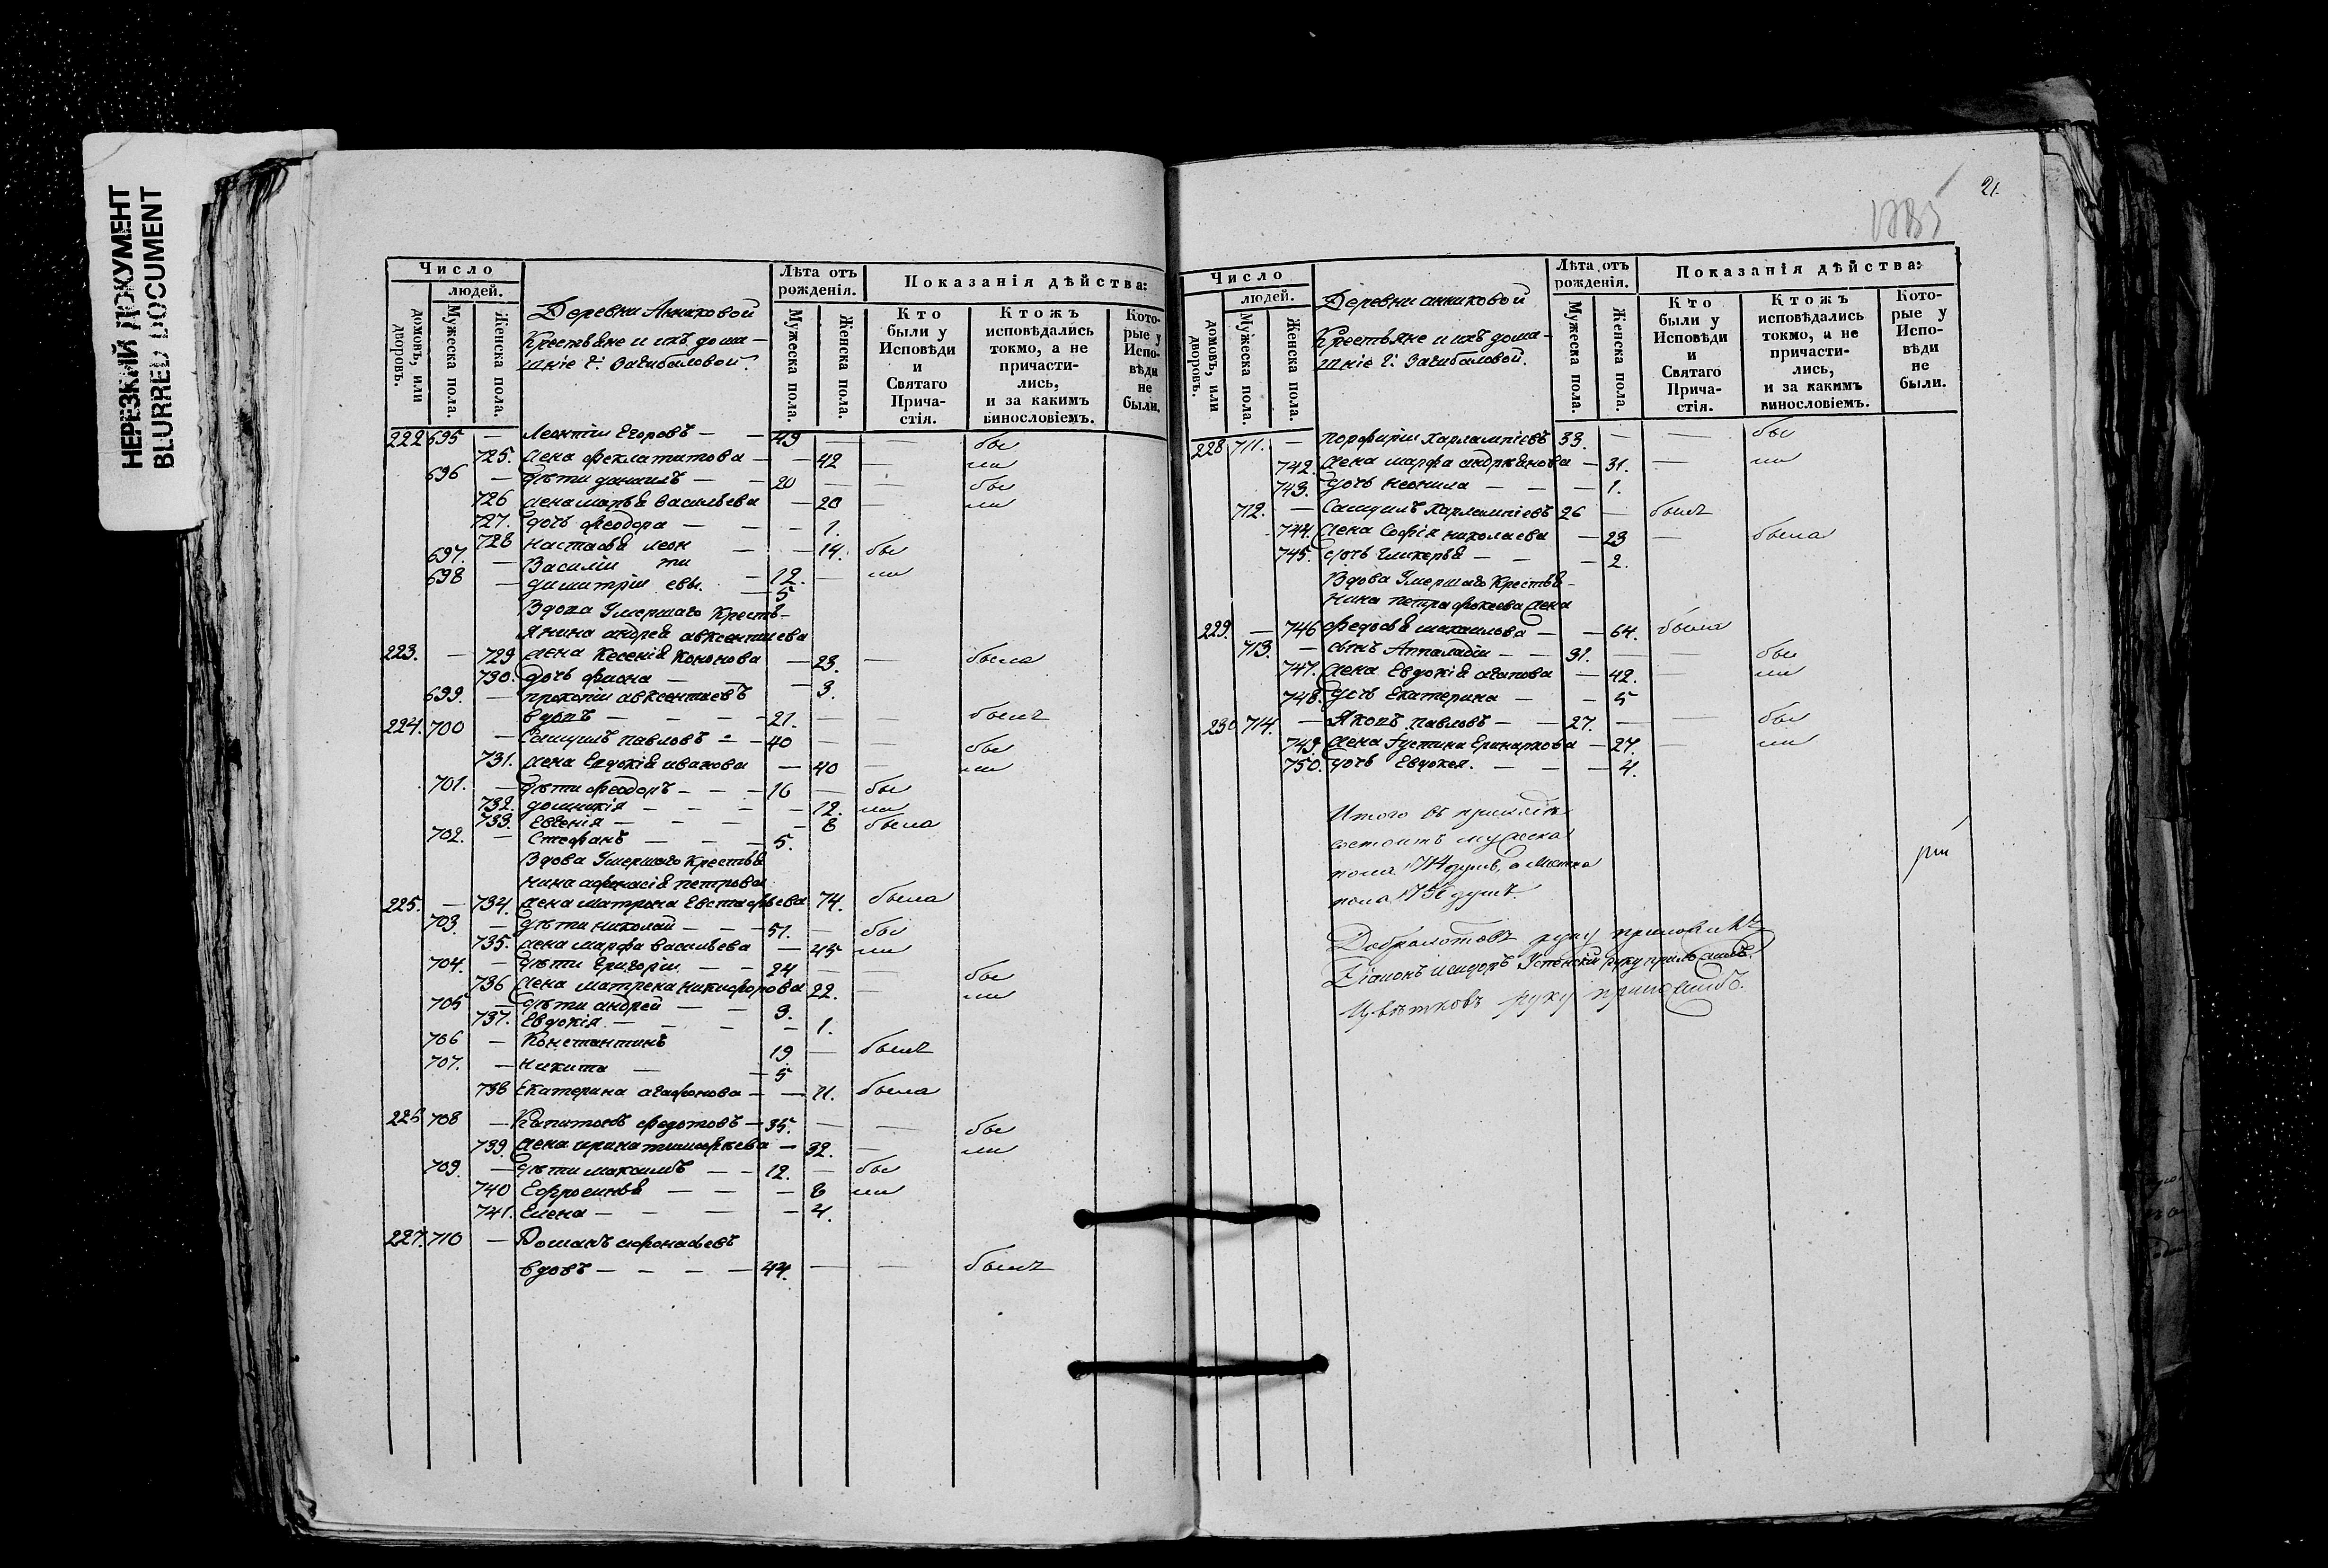 НЕРЕЗКИЙ ДОКУМЕНТ
BLURRED DOCUMENT
Число
людей.
домовъ, или дворовъ.
Мужеска пола.
Женска пола.
Деревни Анниковой
Крестьяне и ихъ дома-
шніе г: Загибаловой.
Лѣта отъ рожденія.
Мужеска пола.
Женска пола.
Показанія дѣйства:
Кто были у Исповѣди и Святаго Прича-стія.
Ктожъ исповѣдались токмо, а не причасти-лись, и за какимъ винословіемъ.
Кото-рые у Испо-вѣди не были.
222 695 — Леонтіи Егоровъ — — 49 — — бы
725. жена Фекла титова — — 42 — ли
696 — дѣти даниилъ — — 20 — — бы
726 жена марья Васильева — 20 — ли
727. дочь Феодора — — — 1.
728 Настасья леон — — 14. бы
697. — Василіи ти — 12. — ли
698 — димитріи евы. — 5
Вдова Умершаго Кресть-
янина андрея авксентиева
223. — 729 жена Ксенія Кононова — 23. — была
730. дочь фиона — — — 3.
699. — прокопіи авксентиевъ
вдовъ — — — — 21. — — былъ
224. 700 — Самуилъ павловъ — — 40 — — бы
731. жена Евдокія иванова — 40 — ли
701. — дѣти Феодоръ — — — 16 — бы
732. домникія — — — — 12. ли
733. Евгенія — — — — 8 была
702. — Стефанъ — — — 5.
Вдова Умершаго Крестья
нина афонасія петрова
225. — 734. жена матрона Евстафьева 74. была
703. — дѣти николай — — — 51. — бы
735. жена марфа васильева — 45 ли
704. — дѣти Григоріи — — 24 — — бы
736 жена матрена никифорова 22. — ли
705 — дѣти андрей — — 3.
737. Евдокія — — — — 1.
706 — Константинъ 19 — былъ
707. — никита — — 5
738 Екатерина агафонова — — 71. была
226 708 — Капитонъ федотовъ — 35. — — бы
739. жена ирина тимофѣева — 32. — ли
709. — дѣти максимъ — — 12. — бы
740 Ефросинья — — — 8 ли
741. Елена — — — — 4.
227. 710 — Романъ афонасьевъ
вдовъ — — — — 44. — — былъ
21.
Число
людей.
домовъ, или дворовъ.
Мужеска пола.
Женска пола.
Деревни анниковой
Крестьяне и ихъ дома-
шніе г: Загибаловой.
Лѣта отъ рожденія.
Мужеска пола.
Женска пола.
Показанія дѣйства:
Кто были у Исповѣди и Святаго Прича-стія.
Ктожъ исповѣдались токмо, а не причасти-лись, и за какимъ винословіемъ.
Кото-рые у Испо-вѣди не были.
228 711. — порфиріи Харлампіевъ 33. — — бы
742. жена марфа андриянова — 31. — ли
743. дочь неонила — — — 1.
712. — Самуилъ Харлампіевъ 26 — былъ
744. жена Софія николаева — 23 — была
745. дочь гликерья — — — 2.
Вдова Умершаго Крестья-
нина петра фокеева жена
229. — 746 федосья михаилова — — 64. была
713. — сынъ Апполадіи — — 31. — — бы
747. жена Евдокія агапова — 42. — ли
748. дочь Екатерина — — 5
230 714. — Яковъ павловъ — — 27. — — бы
749. жена Густина Еринархова — 27. — ли
750. дочь Евдокея. — — — 4.
Итого въ приходѣ
состоитъ мужеска
пола 714 душъ, а женска
пола 750 душъ.
Добромотовъ руку приложилъ
Діаконъ исидоръ Успенскіи руку приложилъ.
Цвѣтковъ руку приложилъ.